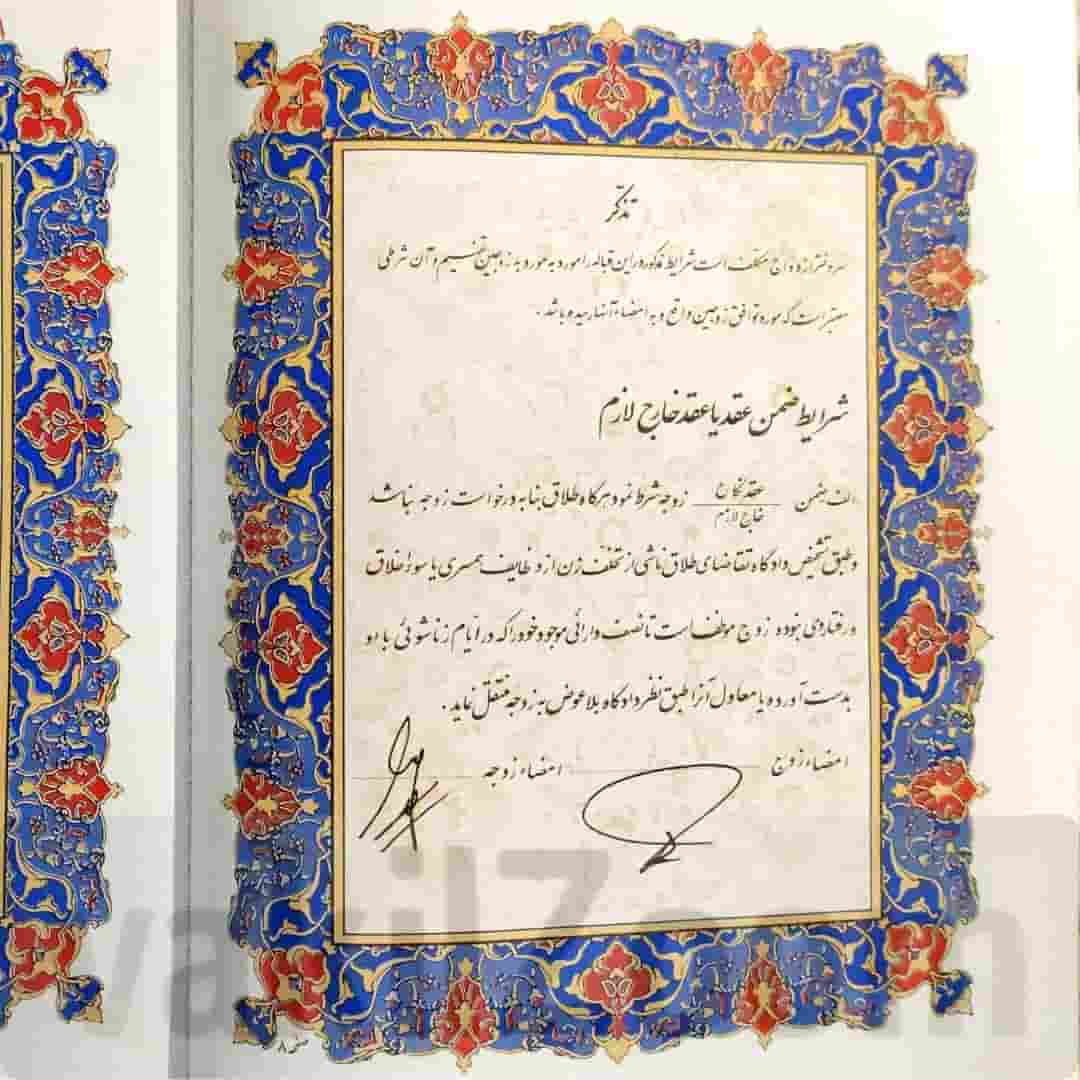 تذکّر
سردفتر ازدواج مکلف است شرایط مذکور در این قباله را مورد به مورد به زوجین تفهیم و آن شرطی
معتبر است که مورد توافق زوجین واقع و به امضاء آنها رسیده باشد .
شرایط ضمن عقد یا عقد خارج لازم
الف ضمن عقد نکاح زوجه شرط نمود هرگاه طلاق بنا به درخواست زوجه نباشد
خارج لازم
و طبق تشخیص دادگاه تقاضای طلاق ناشی از تخلف زن از وظایف همسری یا سوء اخلاق
و رفتار وی نبوده زوج موظف است تا نصف دارائی موجود خود را که در ایام زناشوئی با او
بدست آورده یا معادل آنرا طبق نظر دادگاه بلاعوض به زوجه منتقل نماید .
امضاء زوج امضاء زوجه
صفحه ۸
vakil7.com